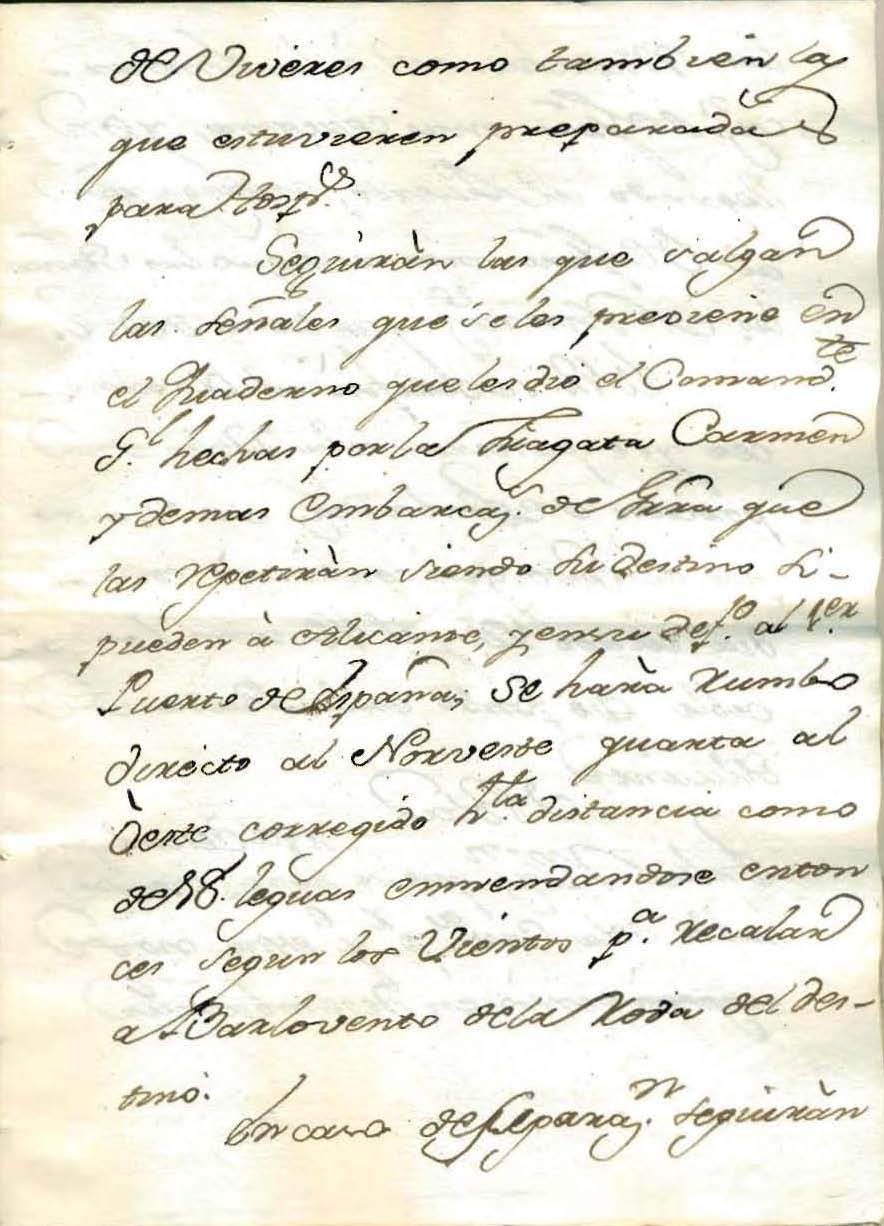 de Viveres como tambien las
que estuvieren preparadas
para Hosp.es
Seguiràn las que salgan
las señales que se les previene en
el Quaderno que les diò el Comand.te
G.l hechas por la Fragata Carmen
y demas Embarcas. de Grra que
las repetiràn siendo su destino si-
pueden à Alicante, y en su def.to al 1.er
Puerto de España; Se harà rumbo
directo al Norueste quarta al
Oeste corregido h.ta distancia como
de leguas enmendandose enton
ces segun los Vientos p.a recalar
a Barlovento de la Rada del des-
tino.
En caso de separas.n seguiràn